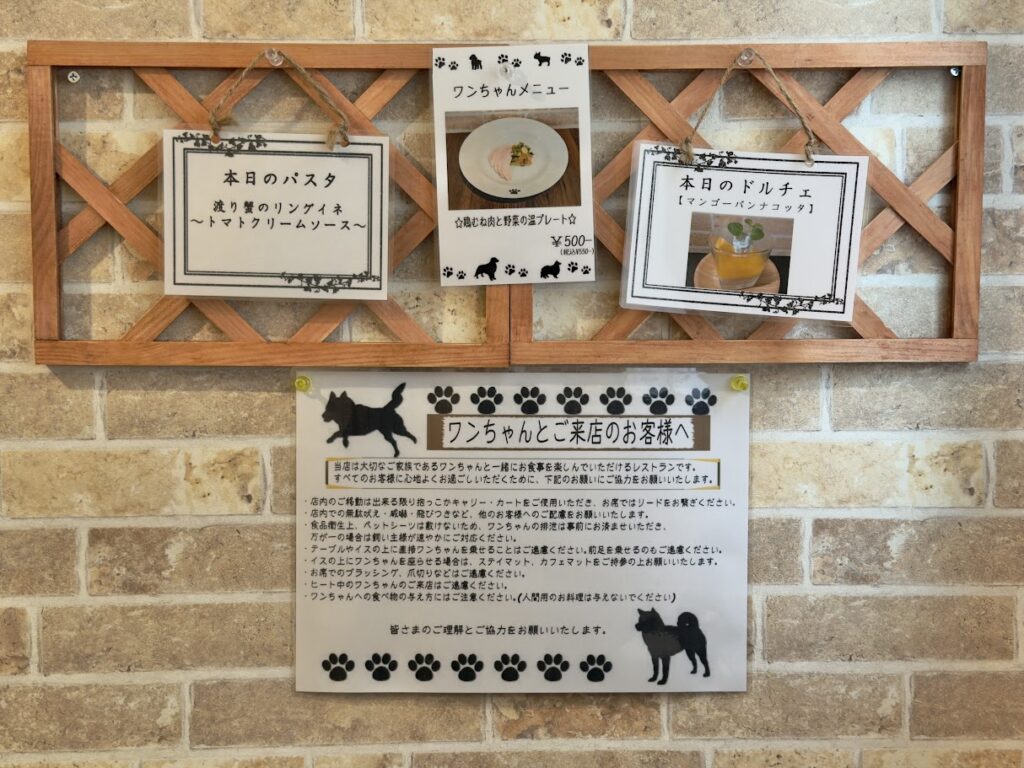 本日のパスタ
渡り蟹のリングイネ
～トマトクリームソース～
ワンちゃんメニュー
☆鶏むね肉と野菜の温プレート☆
¥500-
(税込¥550-)
本日のドルチェ
【マンゴーパンナコッタ】
ワンちゃんとご来店のお客様へ
当店は大切なご家族であるワンちゃんと一緒にお食事を楽しんでいただけるレストランです。
すべてのお客様に心地よくお過ごしいただくために、下記のお願いにご協力をお願いいたします。
・店内のご移動は出来る限り抱っこかキャリー・カートをご使用いただき、お席ではリードをお繋ぎください。
・店内での無駄吠え・威嚇・飛びつきなど、他のお客様へのご配慮をお願いいたします。
・食品衛生上、ペットシーツは敷けないため、ワンちゃんの排泄は事前にお済ませいただき、
万が一の場合は飼い主様が速やかにご対応ください。
・テーブルやイスの上に直接ワンちゃんを乗せることはご遠慮ください。前足を乗せるのもご遠慮ください。
・イスの上にワンちゃんを座らせる場合は、ステイマット、カフェマットをご持参の上お願いいたします。
・お席でのブラッシング、爪切りなどはご遠慮ください。
・ヒート中のワンちゃんのご来店はご遠慮ください。
・ワンちゃんへの食べ物の与え方にはご注意ください。(人間用のお料理は与えないでください)
皆さまのご理解とご協力をお願いいたします。